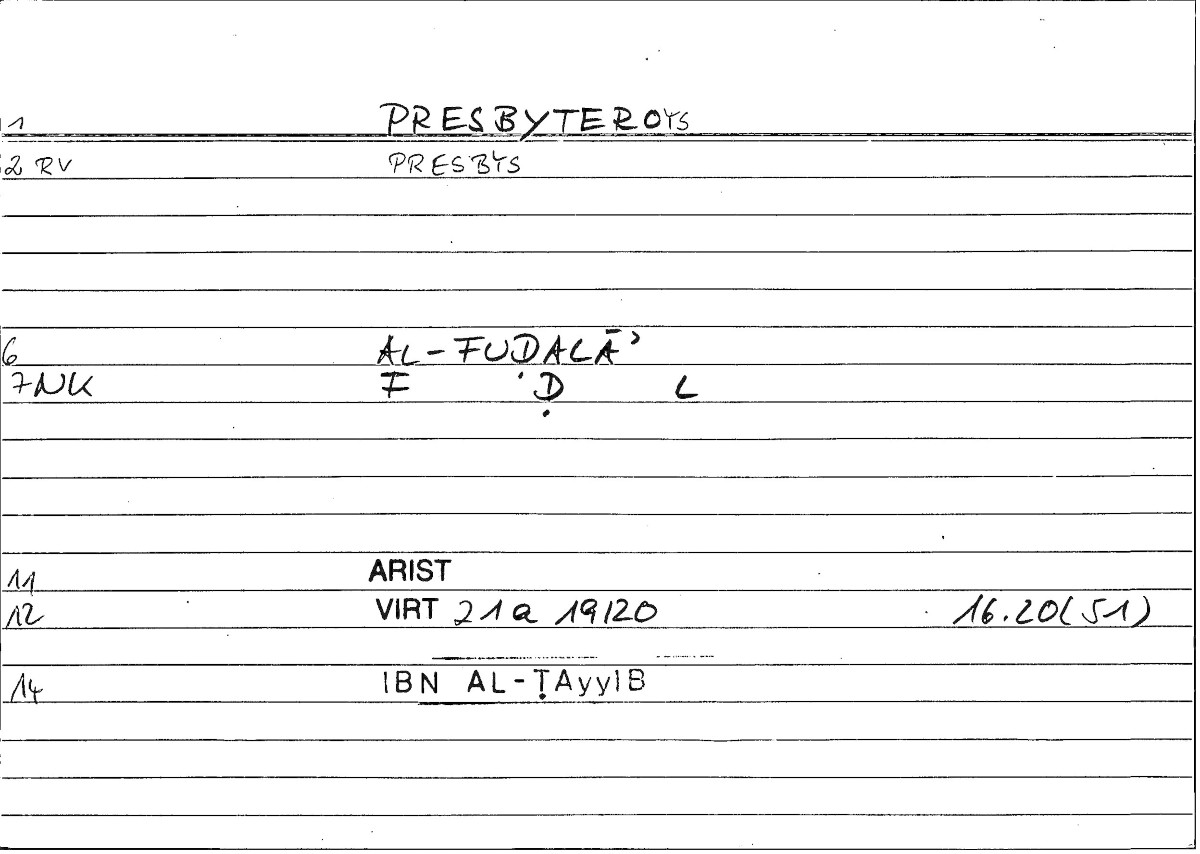 1 PRESBYTEROYS
2 RV PRESBYS
6 AL-FUḌALĀʾ
7NK F Ḍ L
11 ARIST
12 VIRT 21a 19/20 16.20(51)
14 IBN AL-ṬAyyIB